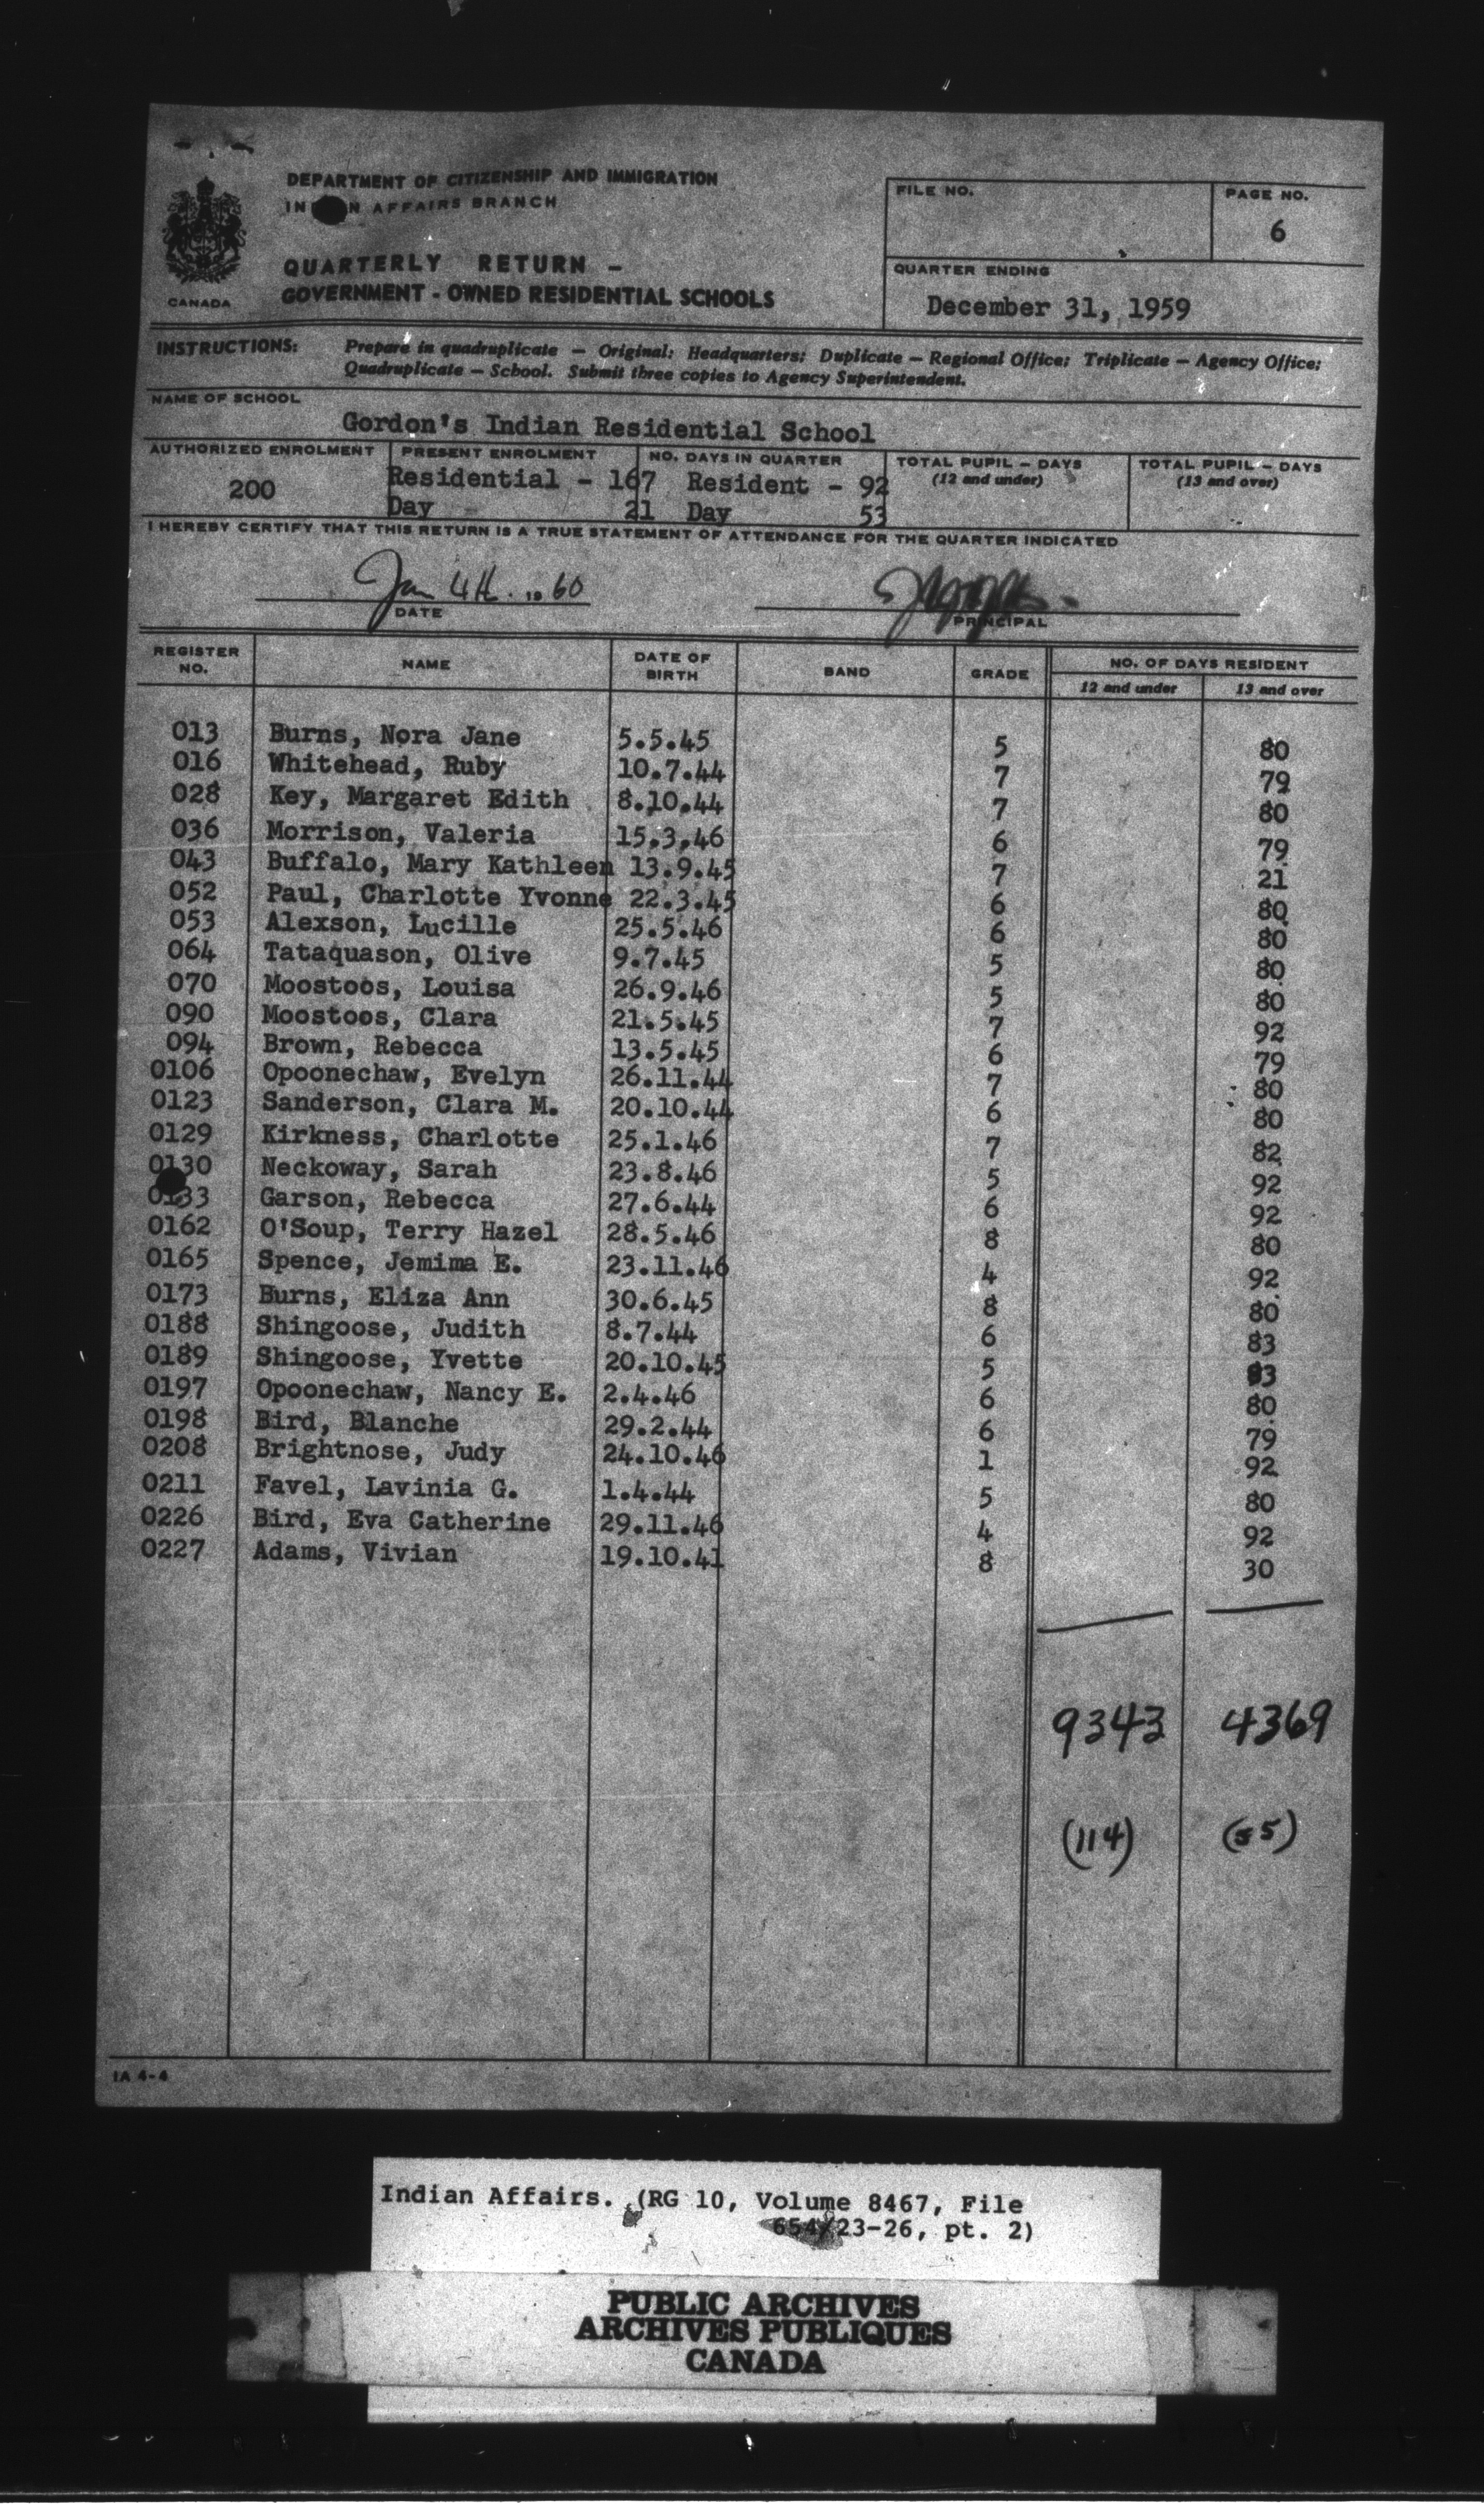 DEPARTMENT OF CITIZENSHIP AND IMMIGRATION
IN N AFFAIRS BRANCH
FILE NO.
PAGE NO.
6
QUARTERLY RETURN -
GOVERNMENT - OWNED RESIDENTIAL SCHOOLS
CANADA
QUARTER ENDING
December 31, 1959
INSTRUCTIONS: Prepare in quadruplicate — Original: Headquarters; Duplicate — Regional Office; Triplicate — Agency Office;
Quadruplicate — School. Submit three copies to Agency Superintendent.
NAME OF SCHOOL
Gordon's Indian Residential School
AUTHORIZED ENROLMENT PRESENT ENROLMENT NO. DAYS IN QUARTER TOTAL PUPIL - DAYS TOTAL PUPIL - DAYS
(12 and under) (13 and over)
200 Residential - 167 Resident - 92
Day 21 Day 53
I HEREBY CERTIFY THAT THIS RETURN IS A TRUE STATEMENT OF ATTENDANCE FOR THE QUARTER INDICATED
Jan 4th. 19 60
DATE PRINCIPAL
REGISTER NO. NAME DATE OF BIRTH BAND GRADE NO. OF DAYS RESIDENT
12 and under 13 and over
013 Burns, Nora Jane 5.5.45 5 80
016 Whitehead, Ruby 10.7.44 7 79
028 Key, Margaret Edith 8.10.44 7 80
036 Morrison, Valeria 15.3.46 6 79
043 Buffalo, Mary Kathleen 13.9.45 7 21
052 Paul, Charlotte Yvonne 22.3.45 6 80
053 Alexson, Lucille 25.5.46 6 80
064 Tataquason, Olive 9.7.45 5 80
070 Moostoos, Louisa 26.9.46 5 80
090 Moostoos, Clara 21.5.45 7 92
094 Brown, Rebecca 13.5.45 6 79
0106 Opoonechaw, Evelyn 26.11.44 7 80
0123 Sanderson, Clara M. 20.10.44 6 80
0129 Kirkness, Charlotte 25.1.46 7 82
0130 Neckoway, Sarah 23.8.46 5 92
0133 Garson, Rebecca 27.6.44 6 92
0162 O'Soup, Terry Hazel 28.5.46 8 80
0165 Spence, Jemima E. 23.11.46 4 92
0173 Burns, Eliza Ann 30.6.45 8 80
0188 Shingoose, Judith 8.7.44 6 83
0189 Shingoose, Yvette 20.10.45 5 83
0197 Opoonechaw, Nancy E. 2.4.46 6 80
0198 Bird, Blanche 29.2.44 6 79
0208 Brightnose, Judy 24.10.46 1 92
0211 Favel, Lavinia G. 1.4.44 5 80
0226 Bird, Eva Catherine 29.11.46 4 92
0227 Adams, Vivian 19.10.41 8 30
9343 4369
(114) (55)
IA 4-4
Indian Affairs. (RG 10, Volume 8467, File
654/23-26, pt. 2)
PUBLIC ARCHIVES
ARCHIVES PUBLIQUES
CANADA